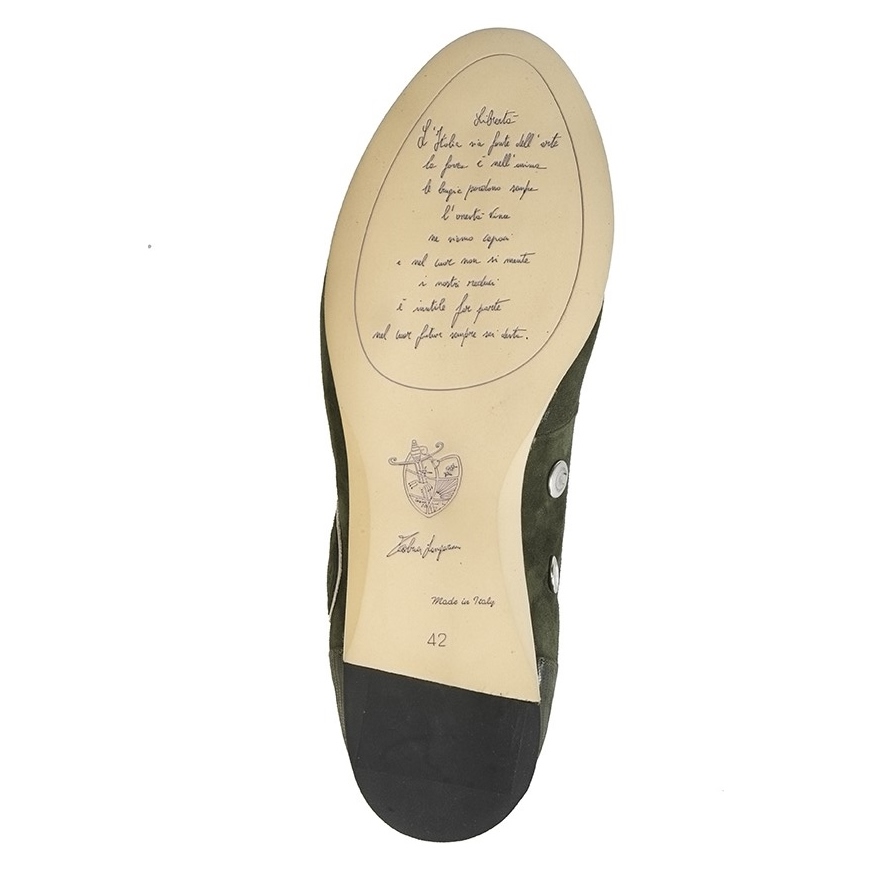 Libertà
L'Italia sia fonte dell'arte
la forza è nell'anima
le bugie perdono sempre
l'onestà vince
ne siamo capaci
e nel cuor non si mente
i nostri
è inutile far parte
nel cuor sempre sei
Made in Italy
42